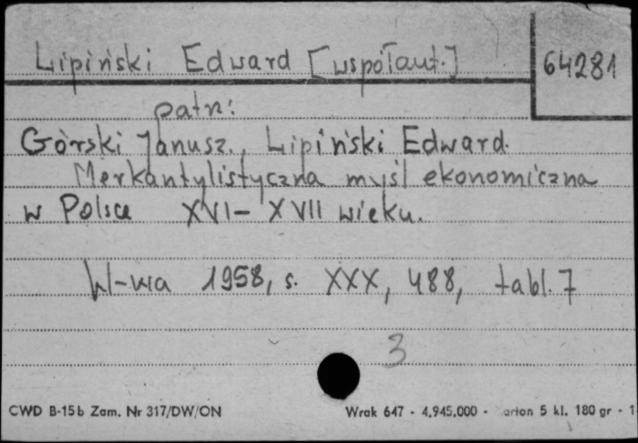 Lipiński Edward [współaut.]
64281
patrz:
Górski Janusz., Lipiński Edward.
Merkantylistyczna myśl ekonomiczna
w Polsce XVI - XVII wieku.
W-wa 1958, s. XXX, 488, tabl. 7
3
CWD B-15b Zam. Nr 317/DW/ON
Wrak 647 - 4.945.000 - arton 5 kl. 180 gr - 1